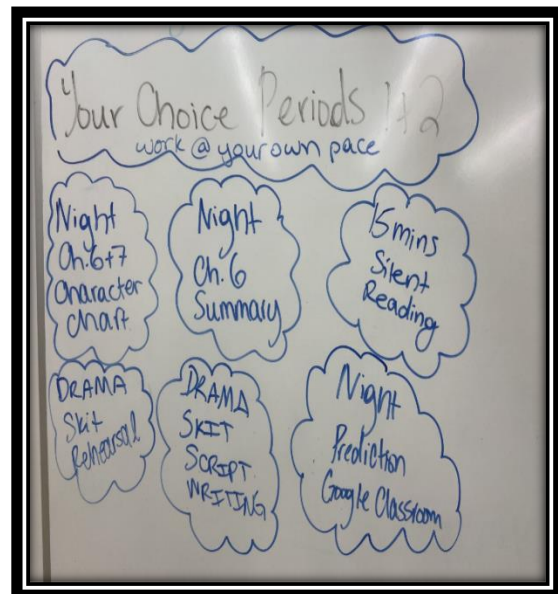 Your Choice Periods 1+2
work @ your own pace
Night
Ch. 6+7
Character
Chart
Night
Ch. 6
Summary
15mins
Silent
Reading
DRAMA
Skit
Rehearsal
DRAMA
SKIT
SCRIPT
WRITING
Night
Prediction
Google Classroom